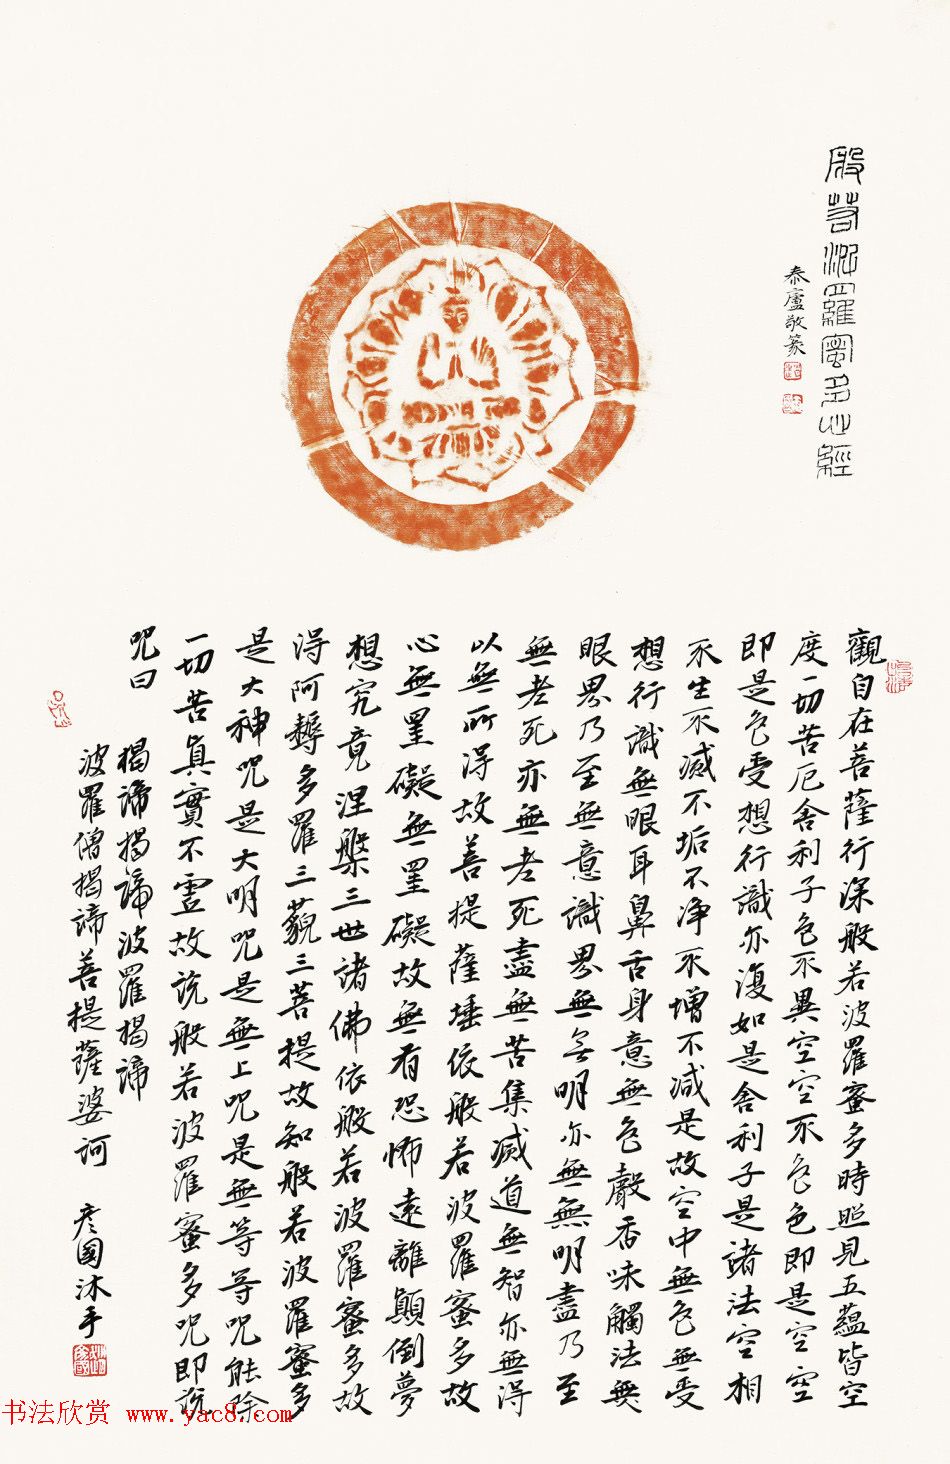 般若波羅蜜多心經
泰廬敬篆
觀自在菩薩行深般若波羅蜜多時照見五蘊皆空
度一切苦厄舍利子色不異空空不色色即是空空
即是色受想行識亦復如是舍利子是諸法空相
不生不滅不垢不淨不增不減是故空中無色無受
想行識無眼耳鼻舌身意無色聲香味觸法無
眼界乃至無意識界無無明亦無無明盡乃至
無老死亦無老死盡無苦集滅道無智亦無得
以無所得故菩提薩埵依般若波羅蜜多故
心無罣礙無罣礙故無有恐怖遠離顛倒夢
想究竟涅槃三世諸佛依般若波羅蜜多故
得阿耨多羅三藐三菩提故知般若波羅蜜多
是大神咒是大明咒是無上咒是無等等咒能除
一切苦真實不虛故說般若波羅蜜多咒即說
咒曰
揭諦揭諦波羅揭諦
波羅僧揭諦菩提薩婆訶
彥國沐手
书法欣赏 www.yac8.com